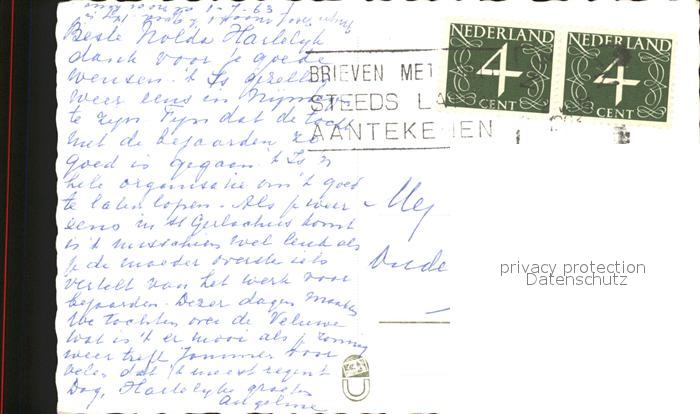 1-7-63
Beste Nolda Hartelijk
dank voor je goede
wensen. 't Is gezellig
weer eens in Nijmegen
te zijn. Fijn dat de tocht
met de bejaarden zo
goed is gegaan. 't Is 'n
hele organisatie om 't goed
te laten lopen. Als je weer
eens in St Gerlachus komt
is 't misschien wel leuk als
je de moeder overste iets
vertelt van het werk voor
bejaarden. Dezer dagen maakten
we tochten over de Veluwe
wat is 't er mooi als je zonnig
weer treft. Jammer voor
velen dat 't meest regent
Dag, Hartelijke groeten
Angeline
BRIEVEN MET
STEEDS LA
AANTEKENEN
NEDERLAND
4
CENT
NEDERLAND
4
CENT
Mej
Oude
privacy protection
Datenschutz